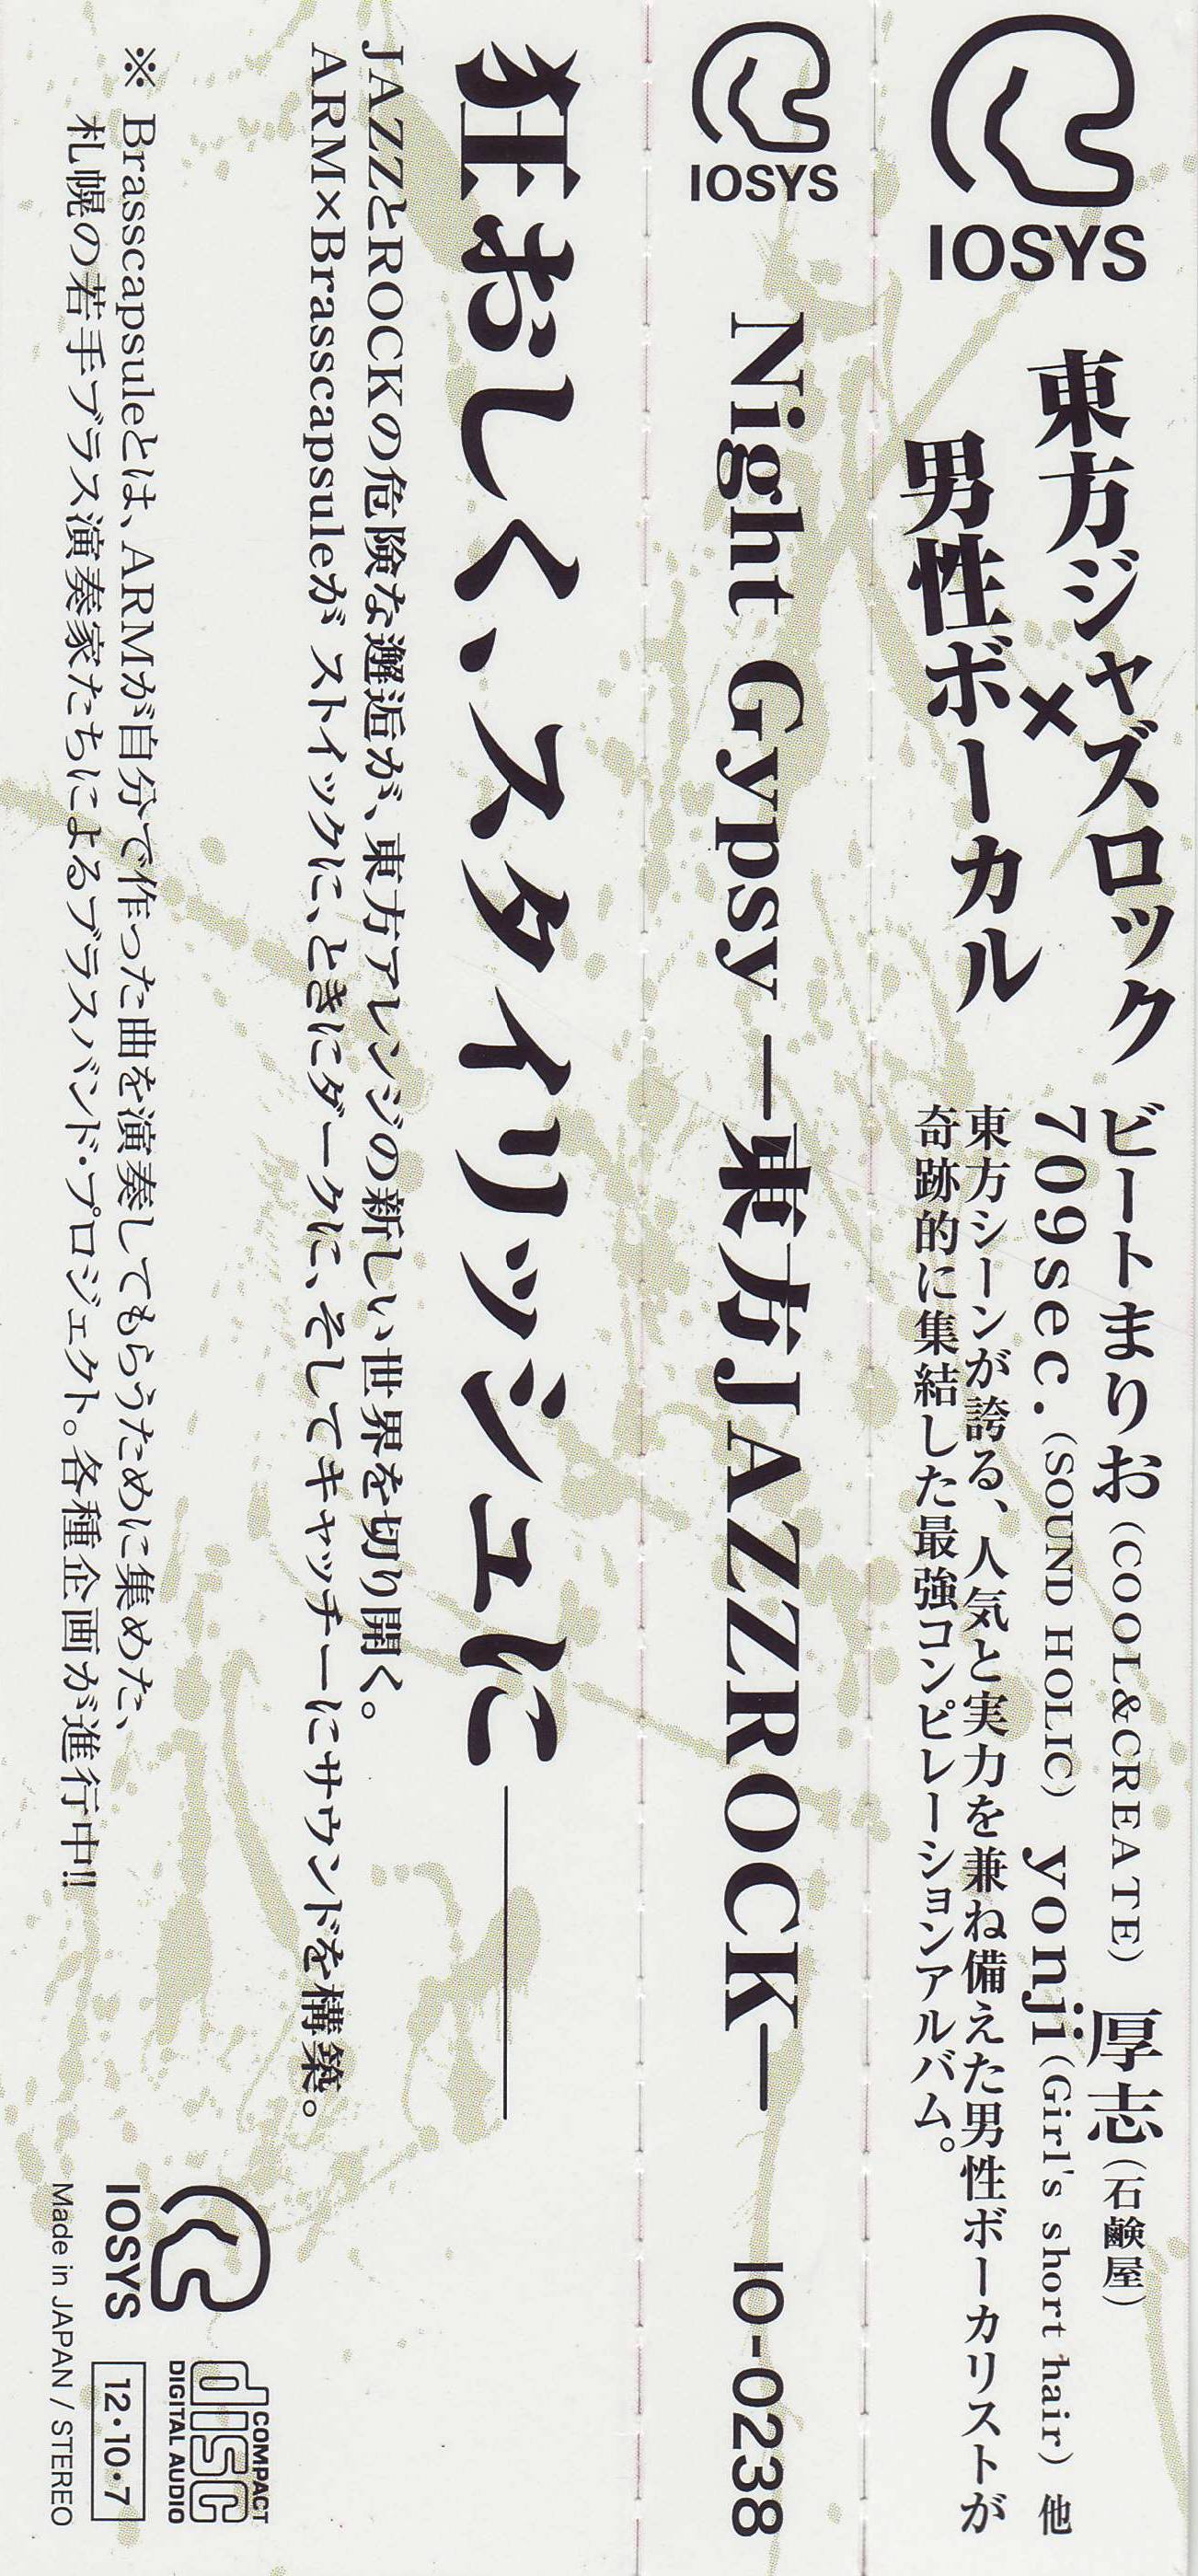 IOSYS
東方ジャズロック
×
男性ボーカル
ビートまりお(COOL&CREATE) 厚志(石鹸屋)
709sec.(SOUND HOLIC) yonji(Girl's short hair) 他
東方シーンが誇る、人気と実力を兼ね備えた男性ボーカリストが
奇跡的に集結した最強コンピレーションアルバム。
IOSYS
Night Gypsy ―東方JAZZROCK―
IO-0238
狂おしく、スタイリッシュに――
JAZZとROCKの危険な邂逅が、東方アレンジの新しい世界を切り開く。
ARM×Brasscapsuleが ストイックに、ときにダークに、そしてキャッチーにサウンドを構築。
※ Brasscapsuleとは、ARMが自分で作った曲を演奏してもらうために集めた、
札幌の若手ブラス演奏家たちによるブラスバンド・プロジェクト。各種企画が進行中!!
IOSYS
COMPACT
disc
DIGITAL AUDIO
12・10・7
Made in JAPAN / STEREO